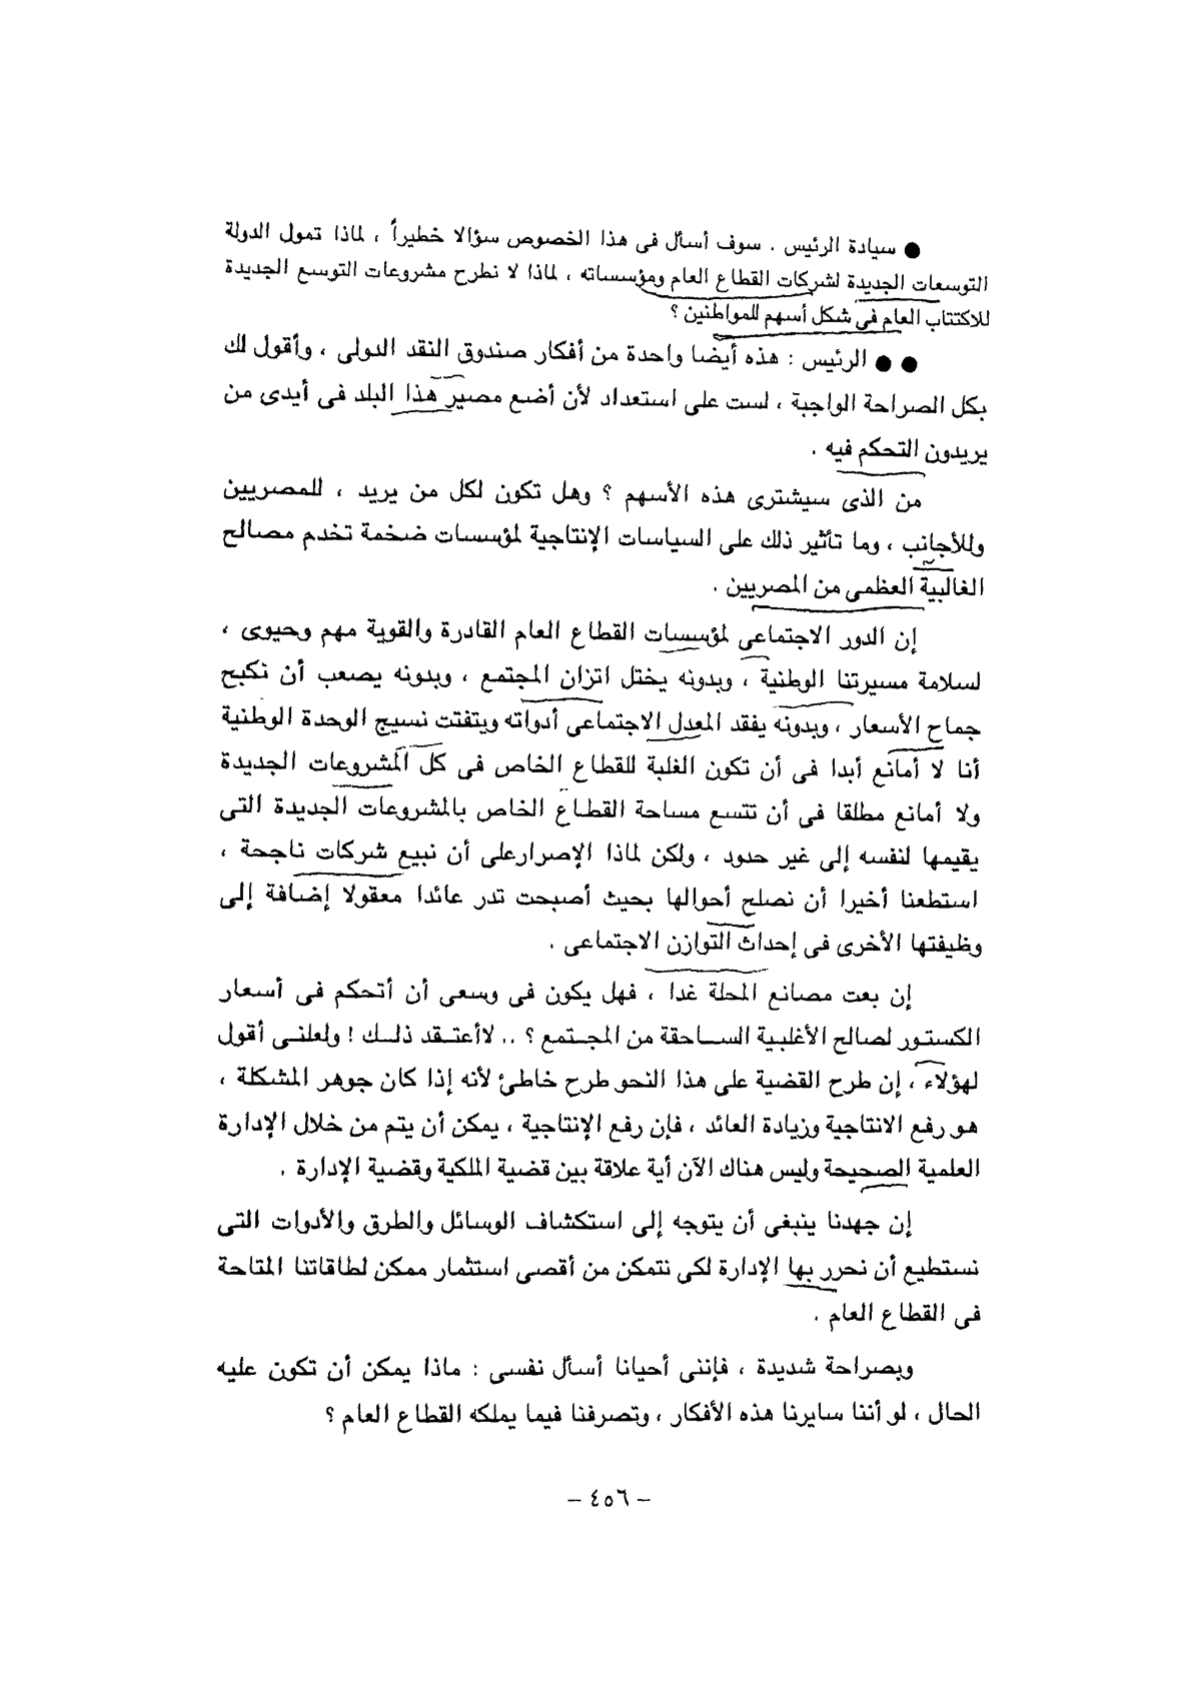 ● سيادة الرئيس . سوف أسأل فى هذا الخصوص سؤالا خطيراً ، لماذا تمول الدولة
التوسعات الجديدة لشركات القطاع العام ومؤسساته ، لماذا لا نطرح مشروعات التوسع الجديدة
للاكتتاب العام فى شكل أسهم للمواطنين ؟
●● الرئيس : هذه أيضا واحدة من أفكار صندوق النقد الدولى ، وأقول لك
بكل الصراحة الواجبة ، لست على استعداد لأن أضع مصير هذا البلد فى أيدى من
يريدون التحكم فيه .
من الذى سيشترى هذه الأسهم ؟ وهل تكون لكل من يريد ، للمصريين
وللأجانب ، وما تأثير ذلك على السياسات الإنتاجية لمؤسسات ضخمة تخدم مصالح
الغالبية العظمى من المصريين .
إن الدور الاجتماعى لمؤسسات القطاع العام القادرة والقوية مهم وحيوى ،
لسلامة مسيرتنا الوطنية ، وبدونه يختل اتزان المجتمع ، وبدونه يصعب أن نكبح
جماح الأسعار ، وبدونه يفقد المعدل الاجتماعى أدواته ويتفتت نسيج الوحدة الوطنية
أنا لا أمانع أبدا فى أن تكون الغلبة للقطاع الخاص فى كل المشروعات الجديدة
ولا أمانع مطلقا فى أن تتسع مساحة القطاع الخاص بالمشروعات الجديدة التى
يقيمها لنفسه إلى غير حدود ، ولكن لماذا الإصرارعلى أن نبيع شركات ناجحة ،
استطعنا أخيرا أن نصلح أحوالها بحيث أصبحت تدر عائدا معقولا إضافة إلى
وظيفتها الأخرى فى إحداث التوازن الاجتماعى .
إن بعت مصانع المحلة غدا ، فهل يكون فى وسعى أن أتحكم فى أسعار
الكستور لصالح الأغلبية الساحقة من المجتمع ؟ .. لاأعتقد ذلك ! ولعلنى أقول
لهؤلاء ، إن طرح القضية على هذا النحو طرح خاطئ لأنه إذا كان جوهر المشكلة ،
هو رفع الانتاجية وزيادة العائد ، فإن رفع الإنتاجية ، يمكن أن يتم من خلال الإدارة
العلمية الصحيحة وليس هناك الآن أية علاقة بين قضية الملكية وقضية الإدارة .
إن جهدنا ينبغى أن يتوجه إلى استكشاف الوسائل والطرق والأدوات التى
نستطيع أن نحرر بها الإدارة لكى نتمكن من أقصى استثمار ممكن لطاقاتنا المتاحة
فى القطاع العام .
وبصراحة شديدة ، فإننى أحيانا أسأل نفسى : ماذا يمكن أن تكون عليه
الحال ، لو أننا سايرنا هذه الأفكار ، وتصرفنا فيما يملكه القطاع العام ؟
– ٤٥٦ –